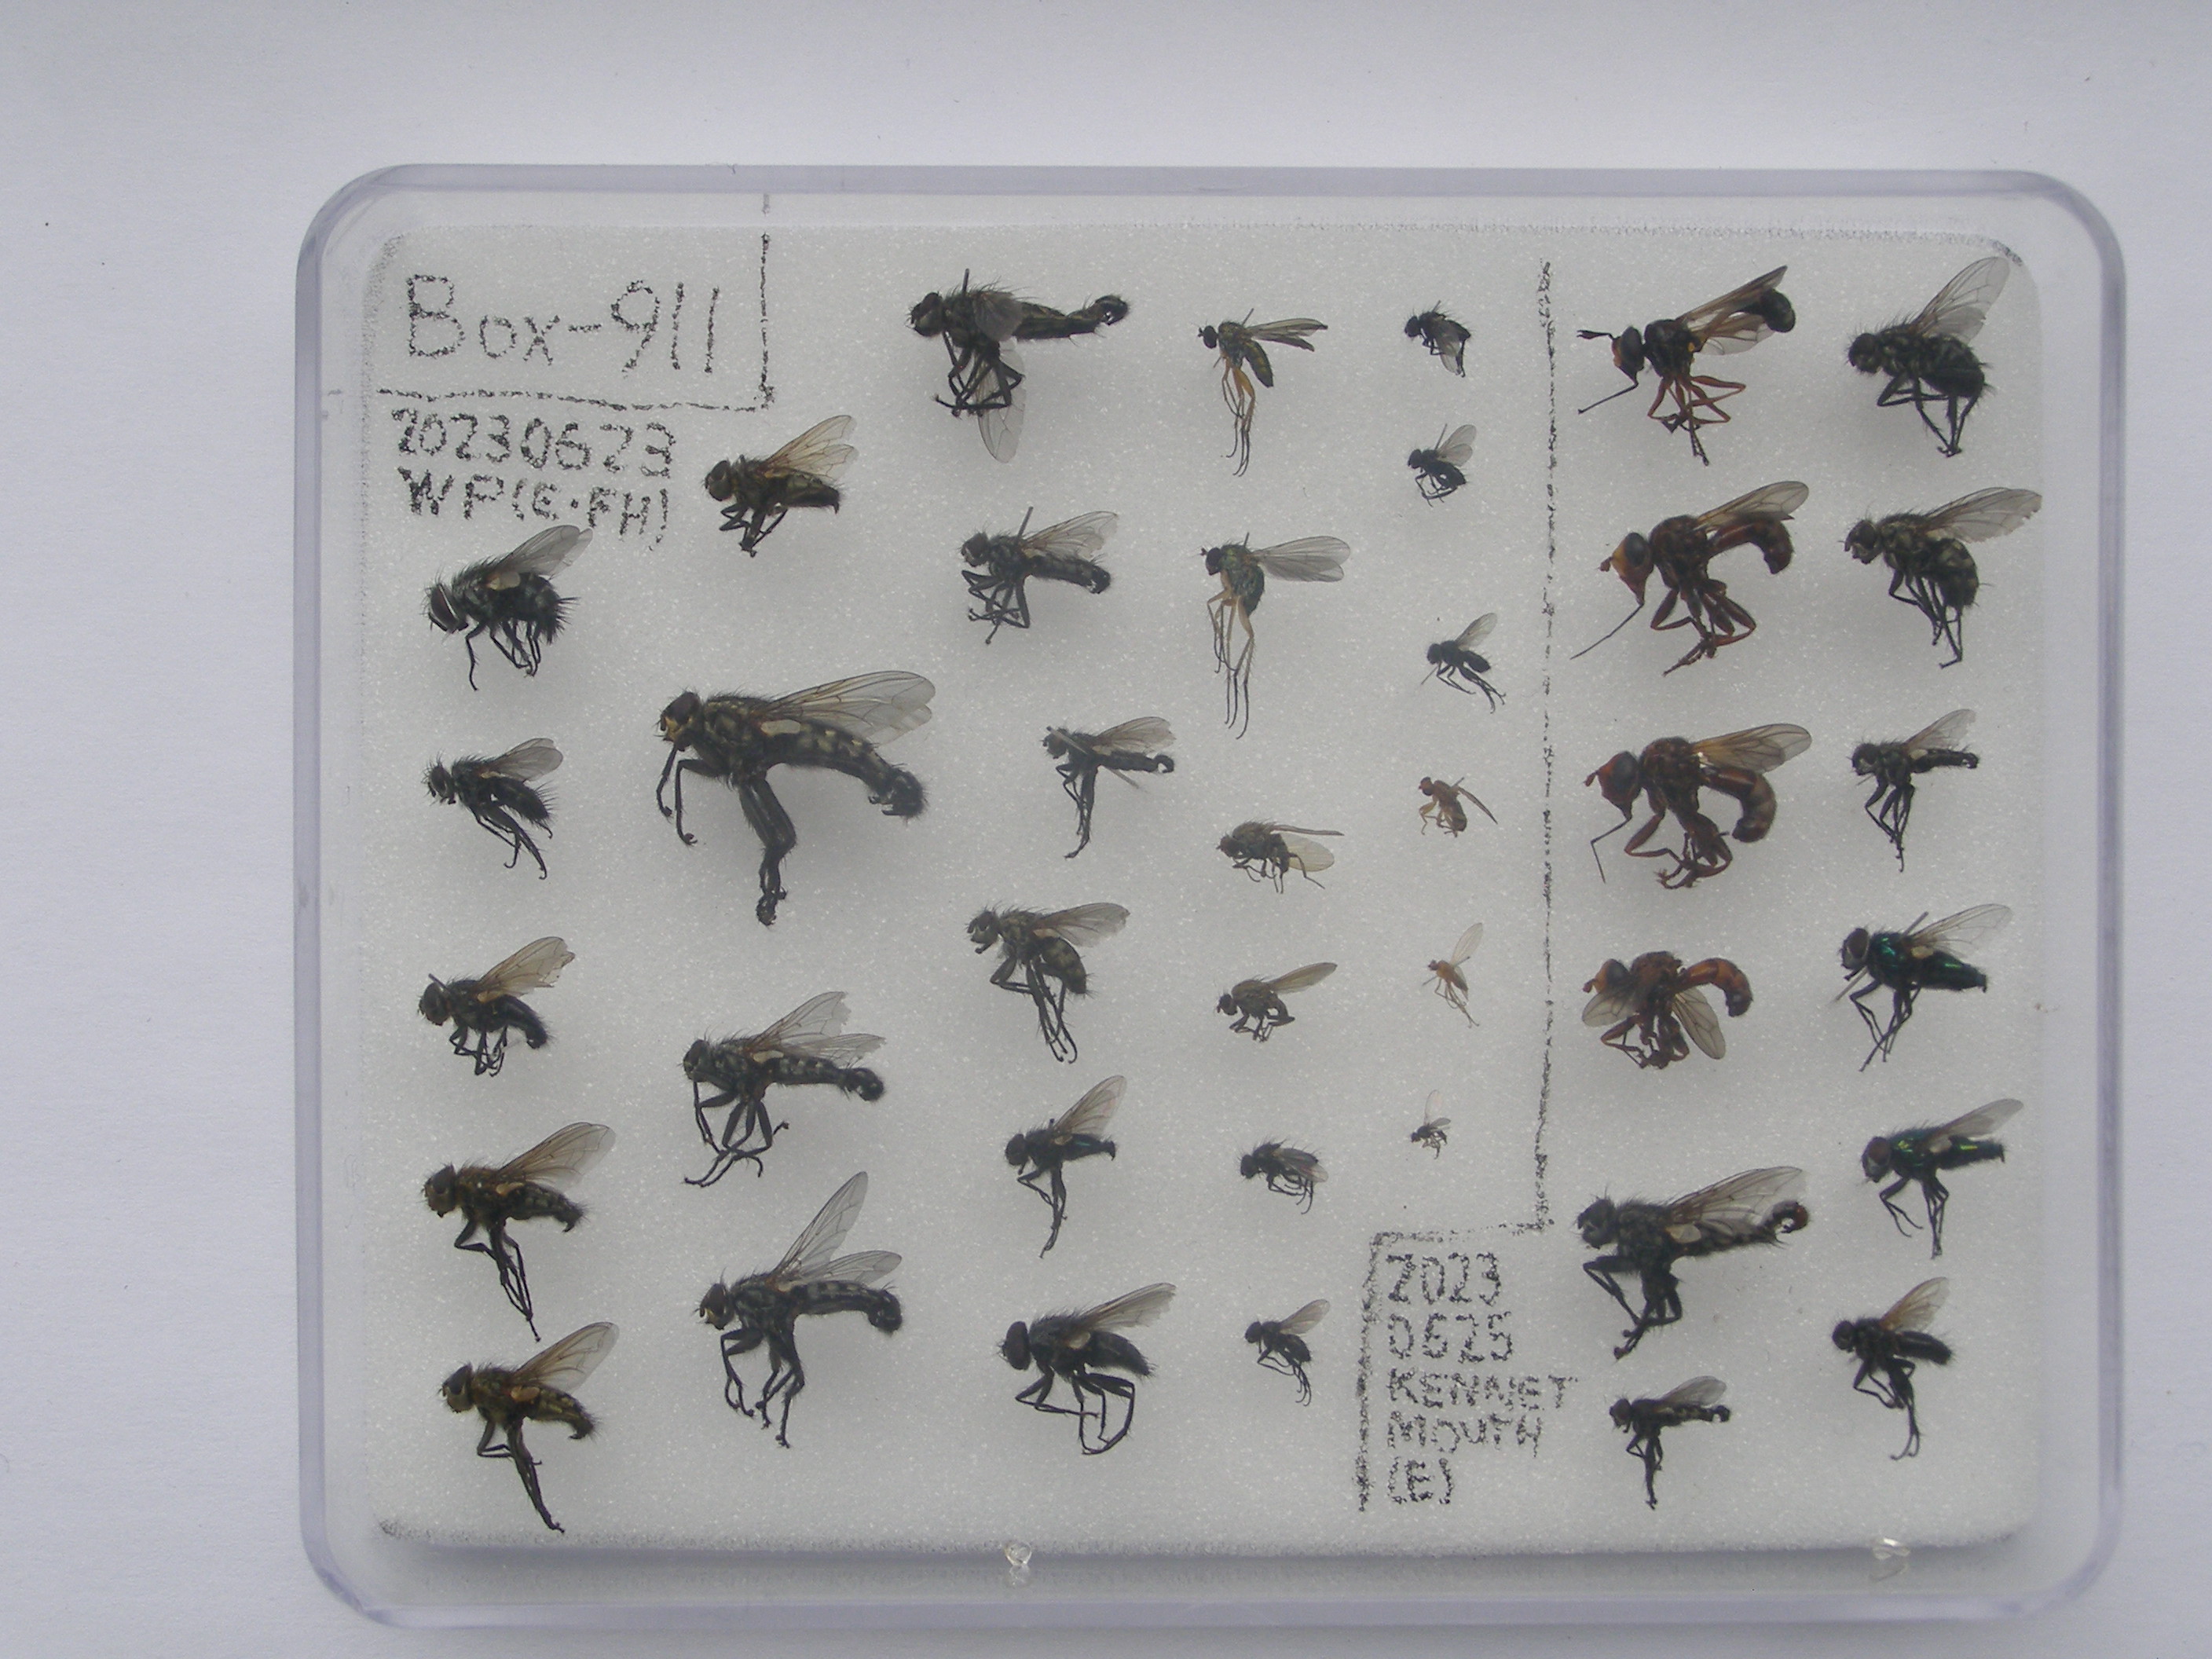 Box-911
20230623
WP(E·FH)
2023
0625
KENNET
MOUTH
(E)